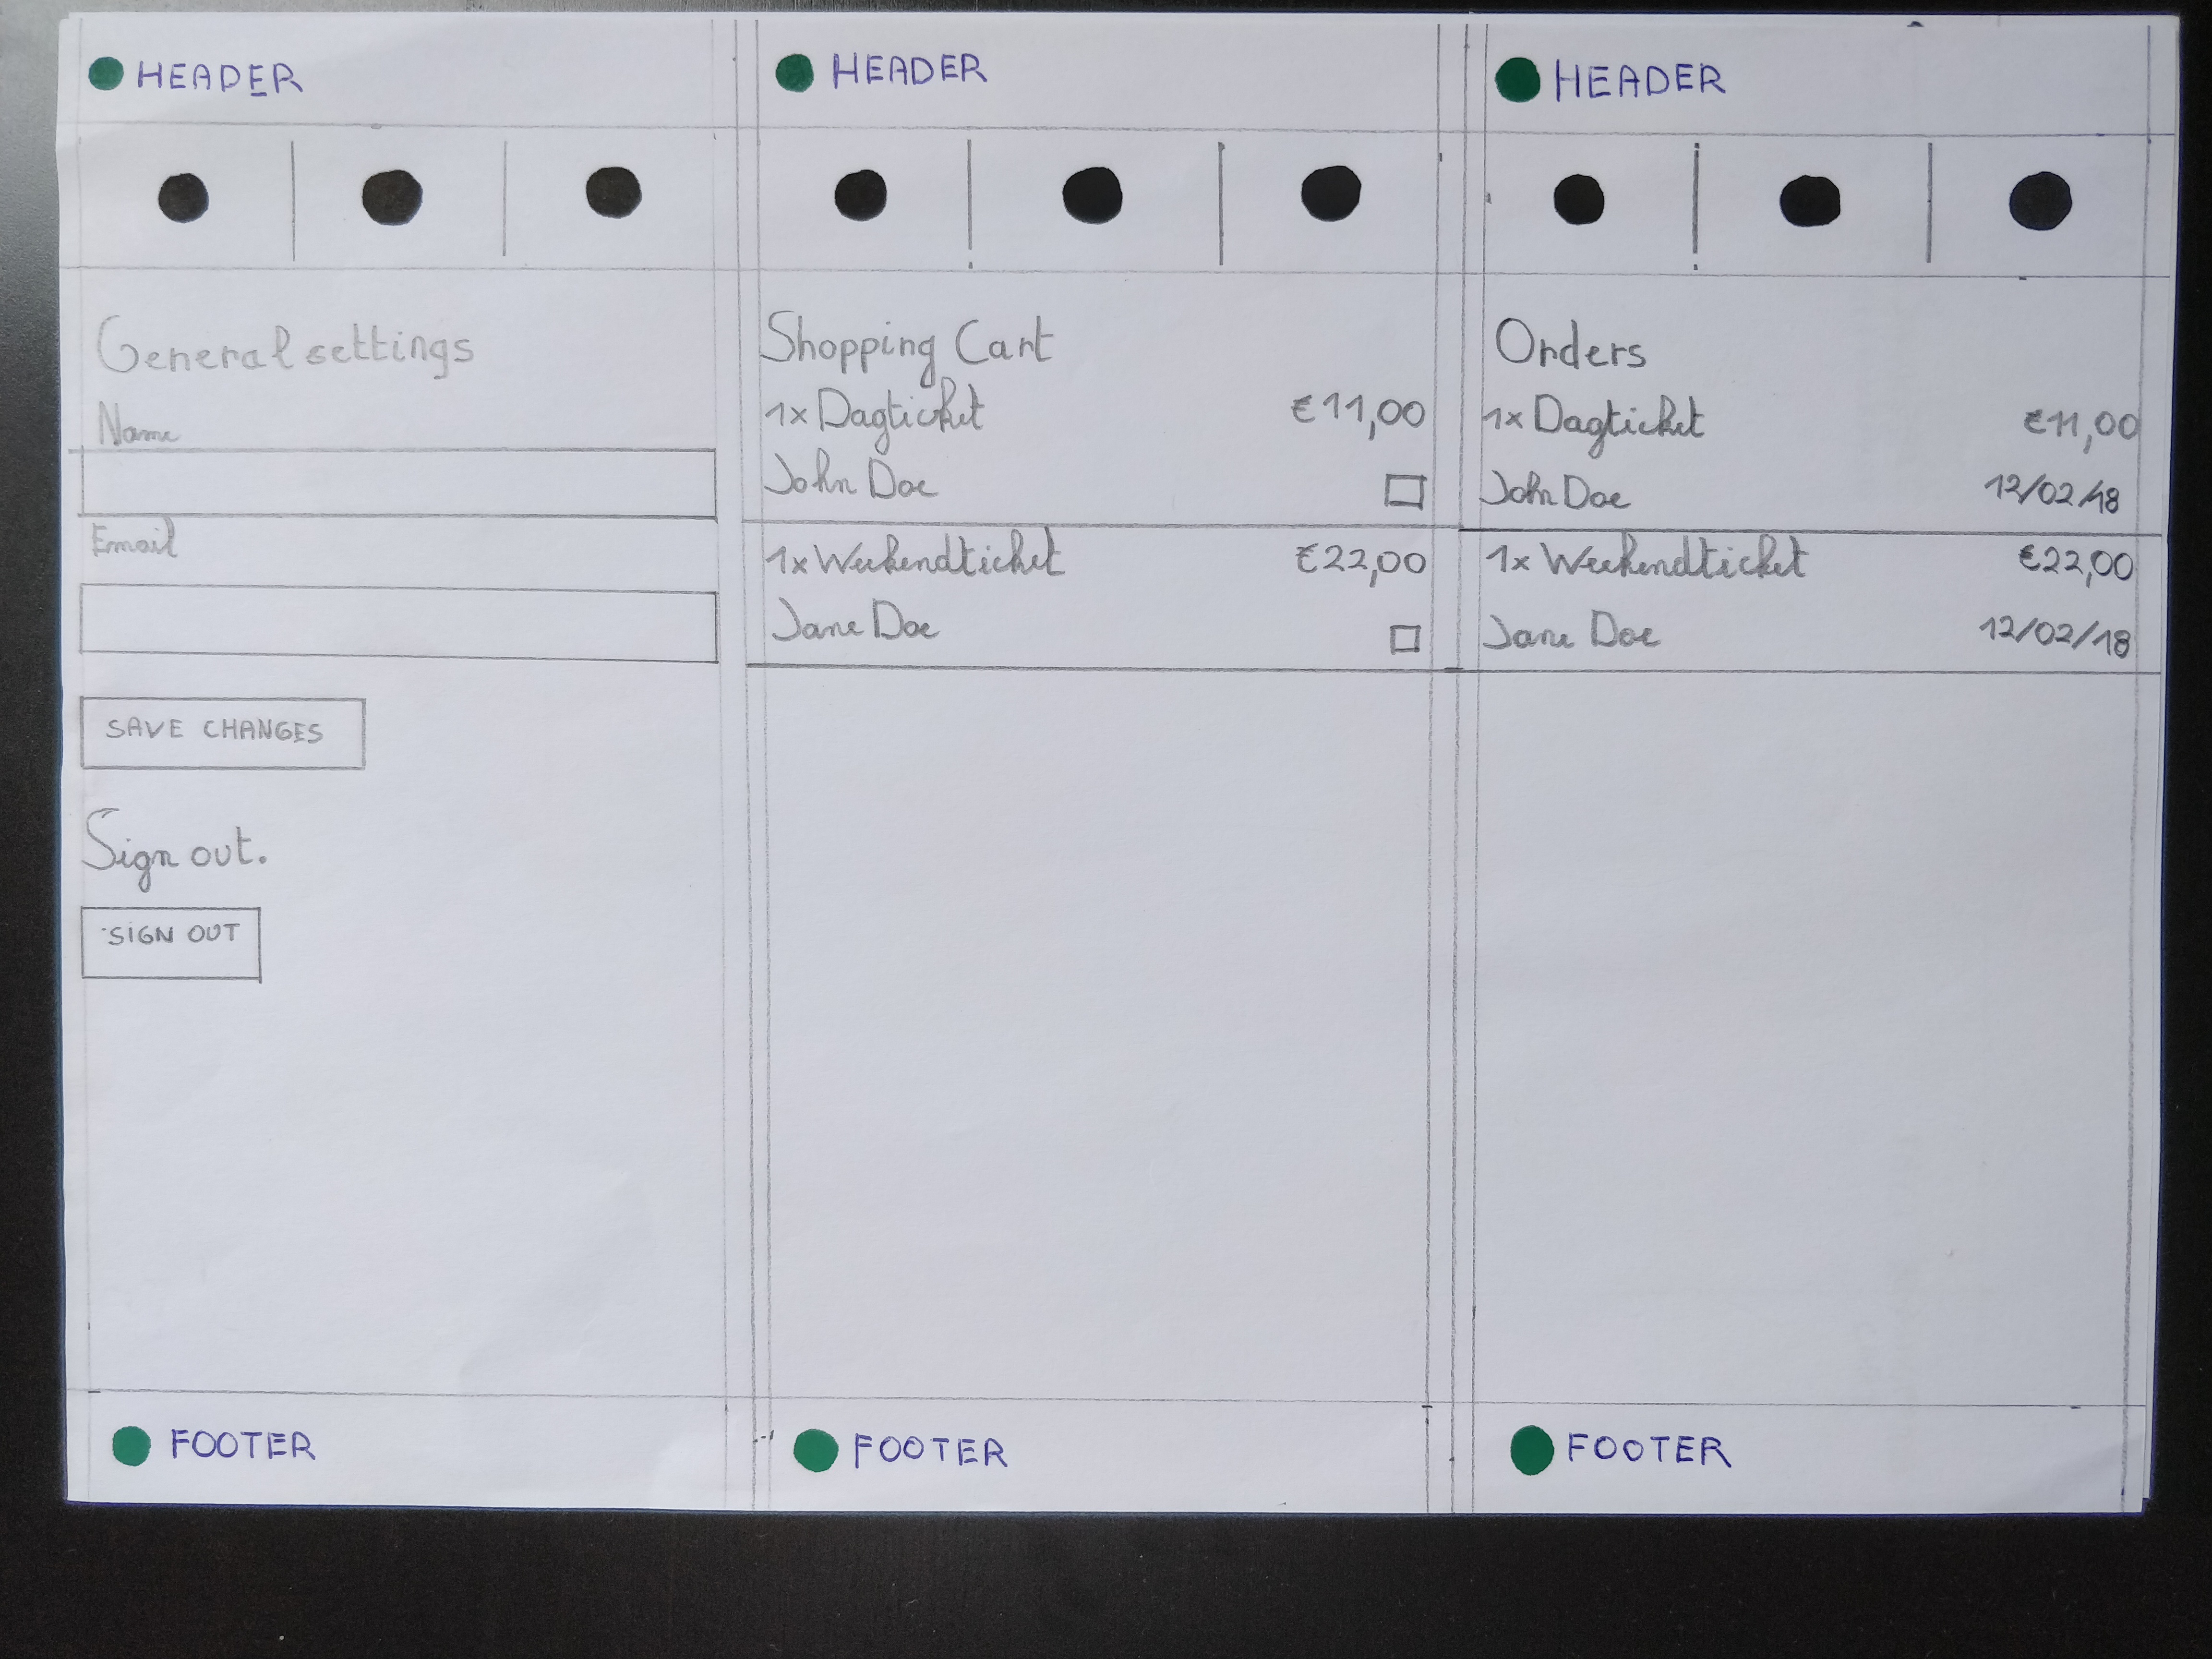 HEADER
General settings
Name
Email
SAVE CHANGES
Sign out.
SIGN OUT
FOOTER
HEADER
Shopping Cart
1x Dagticket €11,00
John Doe
1x Weekendticket €22,00
Jane Doe
FOOTER
HEADER
Orders
1x Dagticket €11,00
John Doe 12/02/18
1x Weekendticket €22,00
Jane Doe 12/02/18
FOOTER